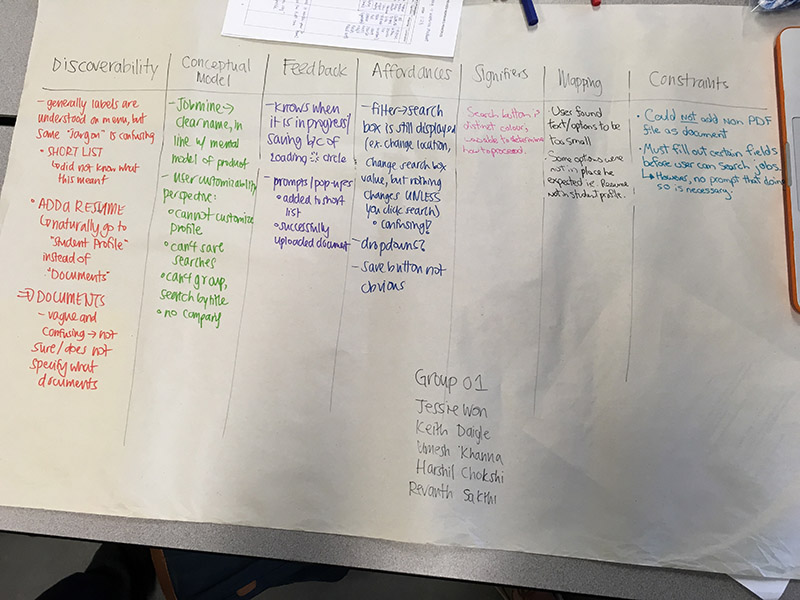 Discoverability
- generally labels are
understood on menu, but
some "jargon" is confusing
• SHORT LIST
↳ did not know what
this meant
• ADD A RESUME
↳ naturally go to
"student profile"
instead of
"Documents"
⇒ DOCUMENTS
- vague and
confusing → not
sure/does not
specify what
documents
Conceptual
Model
- Jobmine →
clear name, in
line w/ mental
model of product
- user customizability
perspective:
• cannot customize
profile
• can't save
searches
• can't group,
search by title
• no company
Feedback
- knows when
it is in progress/
saving b/c of
loading circle
- prompts/pop-ups
• added to short
list
• successfully
uploaded document
Affordances
- filter → search
box is still displayed
(ex. change location,
change search box
value, but nothing
changes UNLESS
you click search)
• confusing?
- dropdowns?
- save button not
obvious
Signifiers
Search button:
distinct colour,
how to proceed.
Mapping
• Users found
text/options to be
too small
• Some options were
not in place he
expected ie. Resume
not in student profile.
Constraints
• Could not add non PDF
file as document
• Must fill out certain fields
before user can search jobs.
↳ However, no prompt that doing
so is necessary
Group 01
Jessie Won
Keith Daigle
Umesh Khanna
Harshil Chokshi
Revanth Sakthi